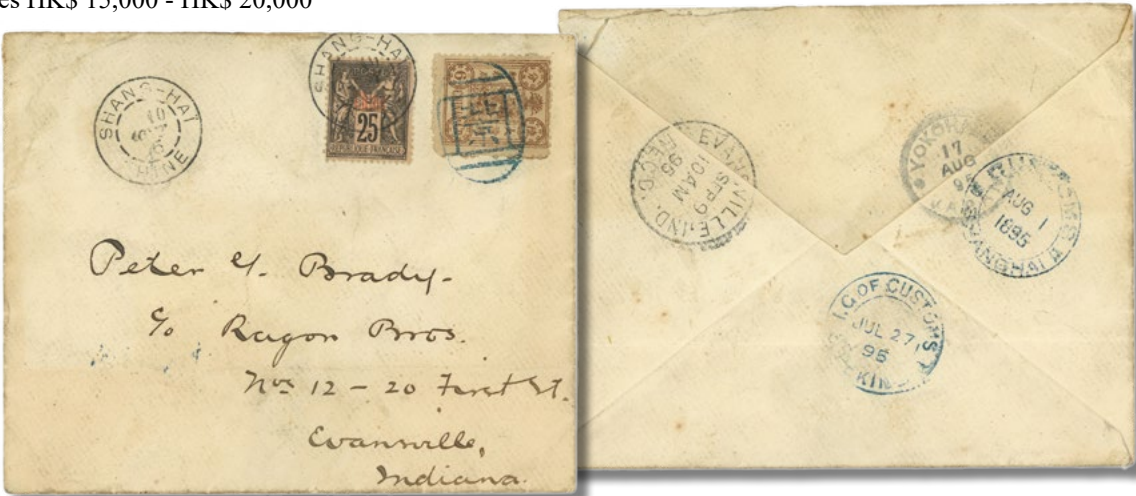 es HK$ 15,000 - HK$ 20,000
SHANG-HAI
10
CHINE
SHANG-HAI
25
REPUBLIQUE FRANCAISE
Peter G. Brady.
c/o Ragon Bros.
Nos 12 - 20 First St.
Evansville,
Indiana.
EVANSVILLE, IND.
SEP 9
10 AM
95
REC'D.
YOKOHAMA
17
AUG
95
CUSTOMS
AUG 1
1895
SHANGHAI
I.G. OF CUSTOMS
JUL 27,
95
PEKING